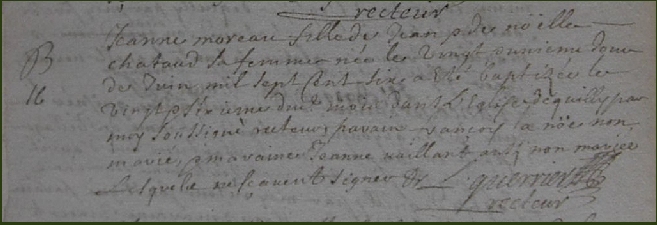 recteur
B
16
Jeanne moreau fille de Jean p de noëlle
chataud sa femme née le vingt onzieme Jour
de Juin mil sept cent six a été baptizée le
vingt du mois dans L'Eglise d'quilly par
moy soussigné recteur, parain la nöe non
marié, marainne Jeanne vaillant non mariée
Lesquels ne scavent signer & L guerrier
recteur